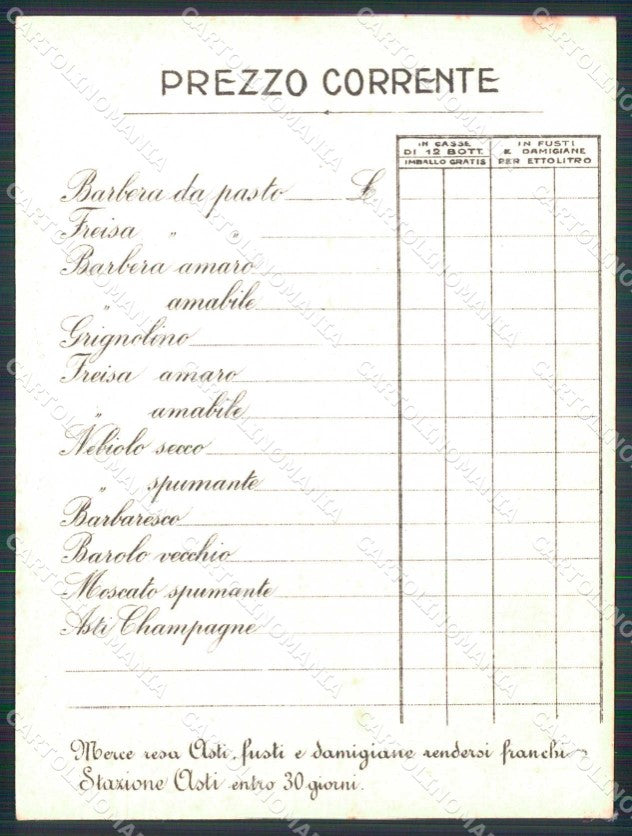 PREZZO CORRENTE
IN CASSE
DI 12 BOTT.
IMBALLO GRATIS
IN FUSTI
E DAMIGIANE
PER ETTOLITRO
Barbera da pasto £
Freisa " "
Barbera amaro
" amabile
Grignolino
Freisa amaro
" amabile
Nebiolo secco
" spumante
Barbaresco
Barolo vecchio
Moscato spumante
Asti Champagne
Merce resa Asti, fusti e damigiane rendersi franchi
Stazione Asti entro 30 giorni.
CARTOLINOMANIA